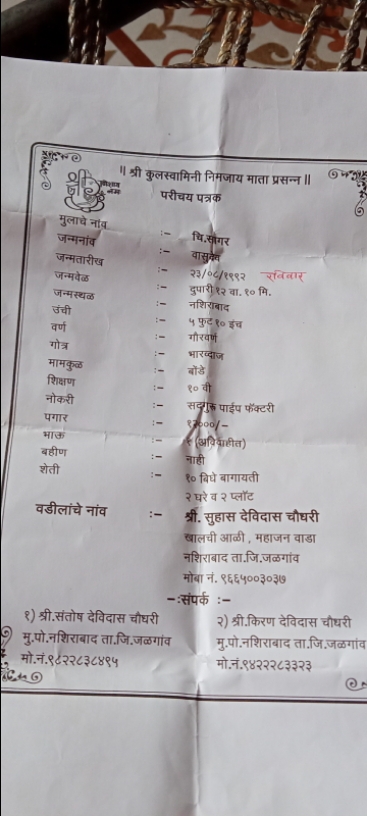 ॥ श्री कुलस्वामिनी निमजाय माता प्रसन्न ॥
परीचय पत्रक
मुलाचे नांव :- चि.सागर
जन्मनांव :- वासुदेव
जन्मतारीख :- २३/०८/१९९२ रविवार
जन्मवेळ :- दुपारी १२ वा. १० मि.
जन्मस्थळ :- नशिराबाद
उंची :- ५ फुट १० इंच
वर्ण :- गौरवर्ण
गोत्र :- भारव्दाज
मामकुळ :- बोंडे
शिक्षण :- १० वी
नोकरी :- सदगुरु पाईप फॅक्टरी
पगार :- १२०००/-
भाऊ :- १ (अविवाहीत)
बहीण :- नाही
शेती :- १० बिघे बागायती
२ घरे व २ प्लॉट
वडीलांचे नांव :- श्री. सुहास देविदास चौधरी
खालची आळी , महाजन वाडा
नशिराबाद ता.जि.जळगांव
मोबा नं. ९६६५००३०३७
-:संपर्क :-
१) श्री.संतोष देविदास चौधरी २) श्री.किरण देविदास चौधरी
मु.पो.नशिराबाद ता.जि.जळगांव मु.पो.नशिराबाद ता.जि.जळगांव
मो.नं.९८२२८३८४९५ मो.नं.९४२२२८३३२३